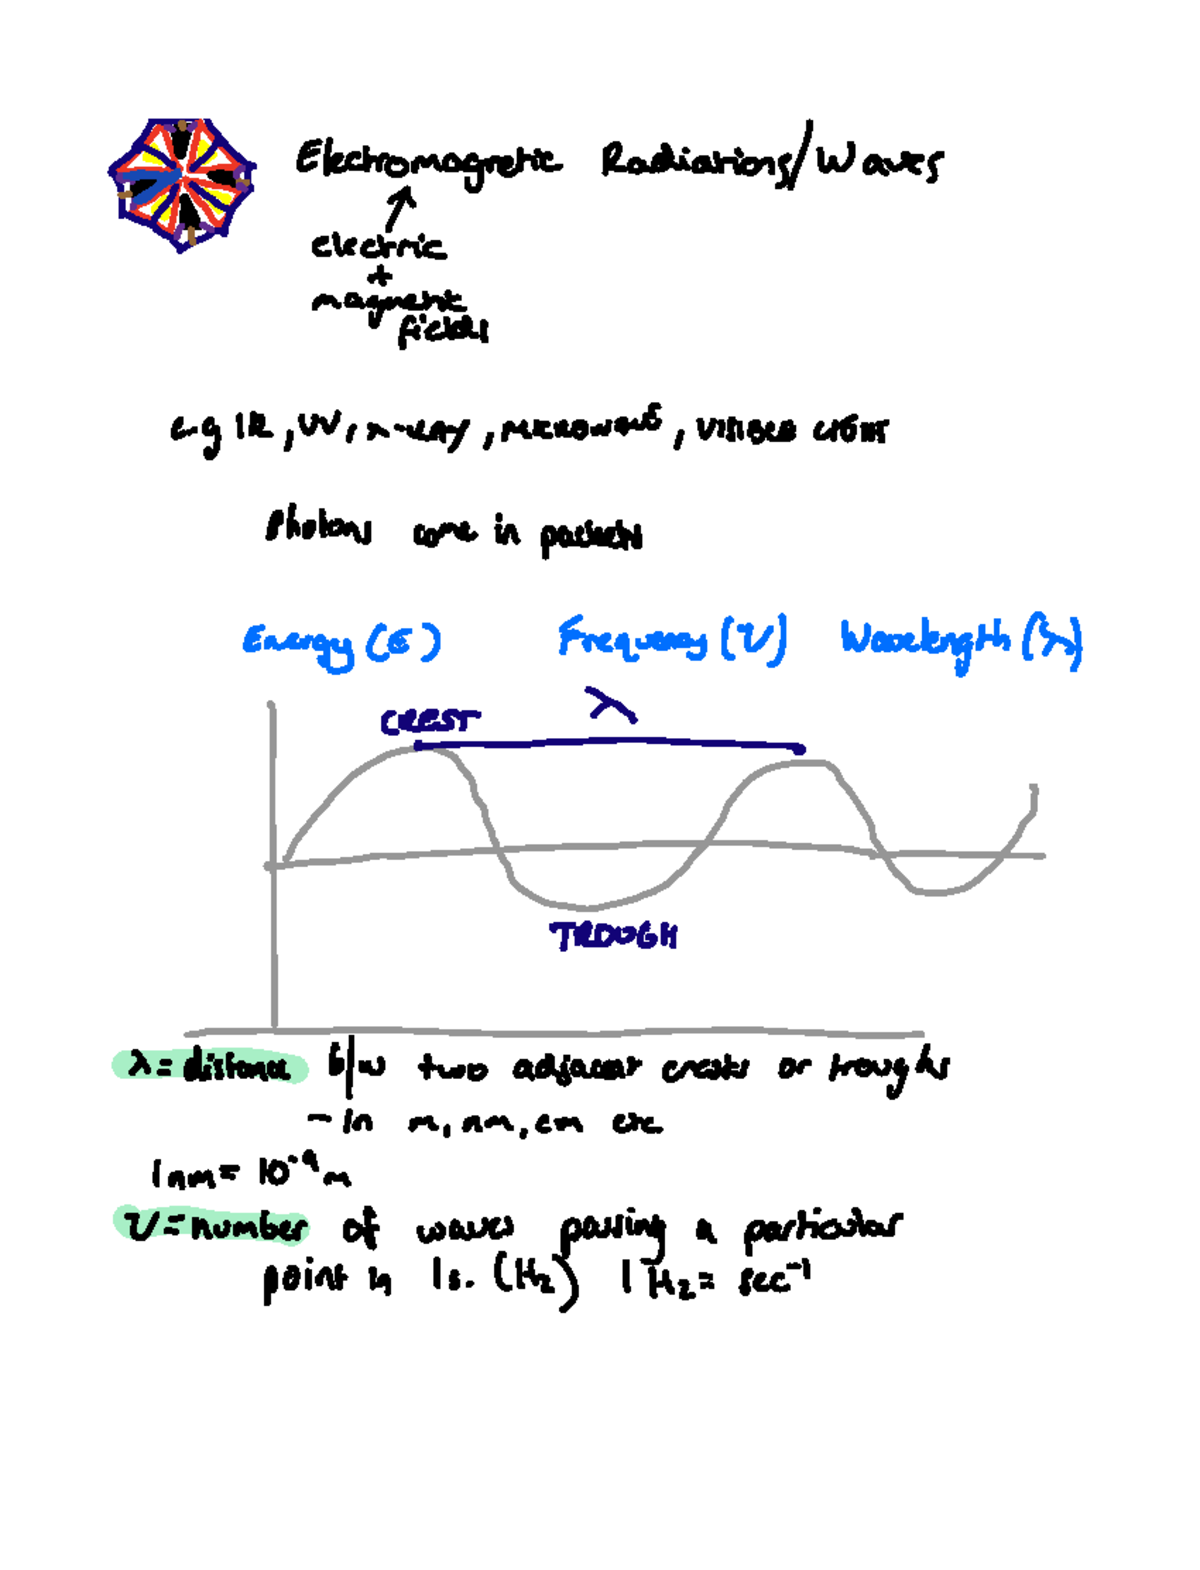 Electromagnetic Radiations/Waves
electric
+
magnetic
fields
e.g IR, UV, X-RAY, MICROWAVE, VISIBLE LIGHT
Photons come in packets
Energy (E) Frequency (ν) Wavelength (λ)
λ
CREST
TROUGH
λ = distance b/w two adjacent crests or troughs
- in m, nm, cm etc
1nm = 10⁻⁹ m
ν = number of waves passing a particular
point in 1s. (Hz) 1 Hz = sec⁻¹